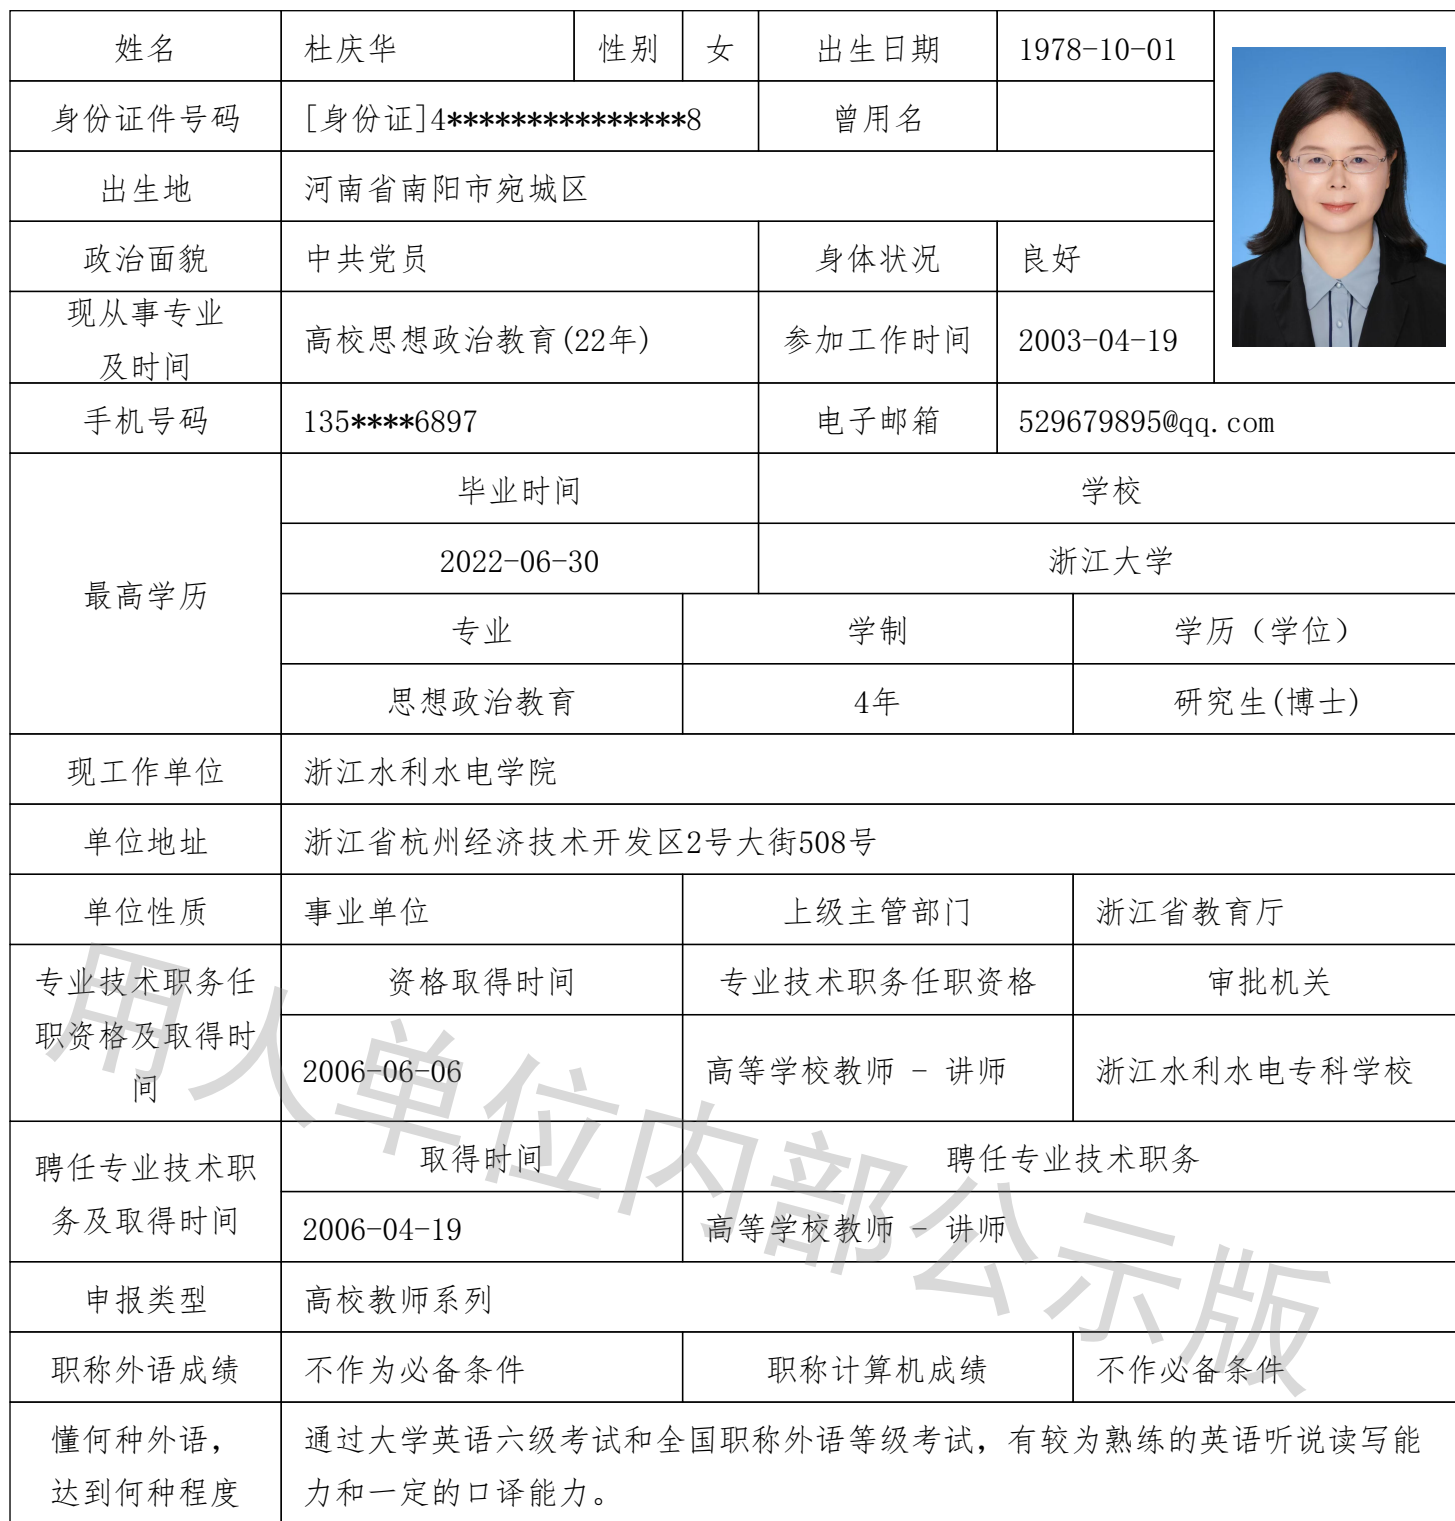 姓名 杜庆华 性别 女 出生日期 1978-10-01
身份证件号码 [身份证]4***************8 曾用名
出生地 河南省南阳市宛城区
政治面貌 中共党员 身体状况 良好
现从事专业
及时间 高校思想政治教育(22年) 参加工作时间 2003-04-19
手机号码 135****6897 电子邮箱 529679895@qq.com
最高学历
毕业时间 学校
2022-06-30 浙江大学
专业 学制 学历（学位）
思想政治教育 4年 研究生(博士)
现工作单位 浙江水利水电学院
单位地址 浙江省杭州经济技术开发区2号大街508号
单位性质 事业单位 上级主管部门 浙江省教育厅
专业技术职务任
职资格及取得时
间
资格取得时间 专业技术职务任职资格 审批机关
2006-06-06 高等学校教师 - 讲师 浙江水利水电专科学校
聘任专业技术职
务及取得时间
取得时间 聘任专业技术职务
2006-04-19 高等学校教师 - 讲师
申报类型 高校教师系列
职称外语成绩 不作为必备条件 职称计算机成绩 不作必备条件
懂何种外语，
达到何种程度
通过大学英语六级考试和全国职称外语等级考试，有较为熟练的英语听说读写能
力和一定的口译能力。
用人单位内部公示版